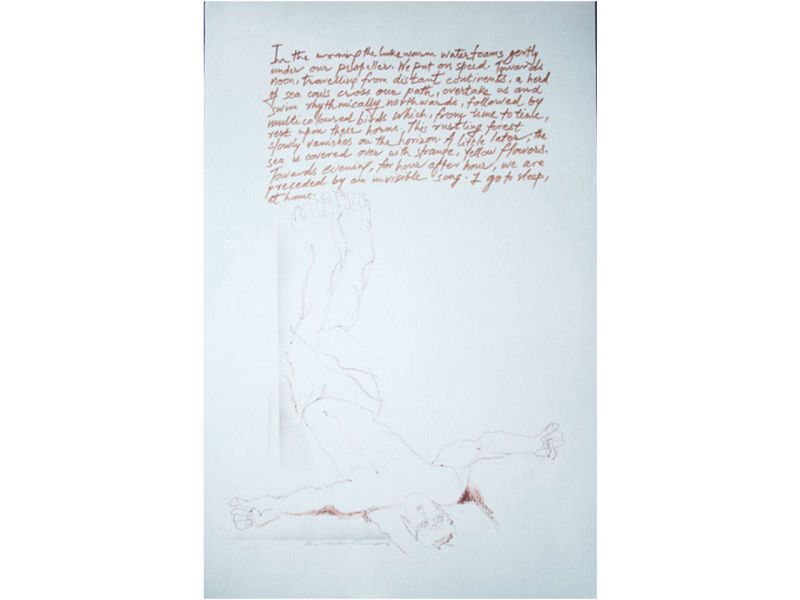 In the morning the lukewarm water foams gently
under our propeller. We put on speed. Towards
noon, travelling from distant continents, a herd
of sea cows cross our path, overtake us and
swim rhythmically northwards, followed by
multicoloured birds which, from time to time,
rest upon their horns. This rustling forest
slowly vanishes on the horizon. A little later, the
sea is covered over with strange, yellow flowers.
Towards evening, for hour after hour, we are
preceded by an invisible song. I go to sleep,
at home.